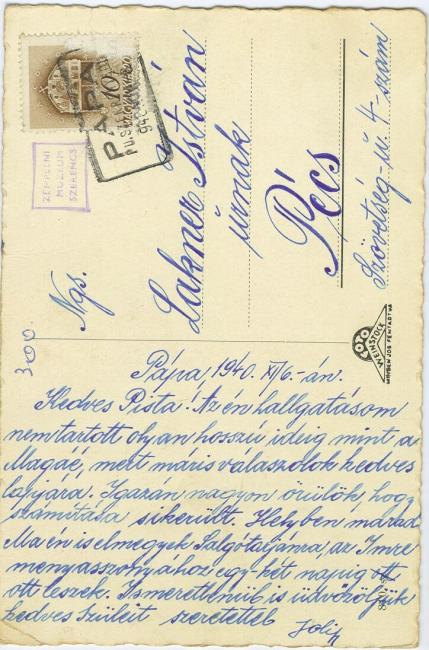 PÁPA
10
ZEMPLÉNI
MÚZEUM
SZERENCS
Ngs.
Lakner István
úrnak
Pécs
Szövetség u. 4-szám
FOTO
WEINSTOCK
MINDEN JOG FENTARTVA
Pápa 1940. XI/6.-án.
Kedves Pista! Az én hallgatásom
nem tartott olyan hosszú ideig mint a
Magáé, mert máris válaszolok kedves
lapjára. Igazán nagyon örülök, hogy
számítása sikerült. Helyben marad
Ma én is elmegyek Salgótarjánra, az Imre
menyasszonyához egy-két napig ott
ott leszek. Ismeretlenül is üdvözöljük
kedves Szüleit szeretettel